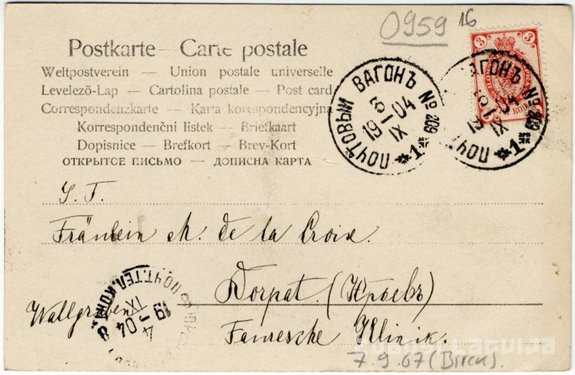 0959 16
Postkarte — Carte postale
Weltpostverein — Union postale universelle
Levelező-Lap — Cartolina postale — Post card
Correspondenzkarte — Karta korespondencyjna
Korrespondenční lístek — Briefkaart
Dopisnice — Brefkort — Brev-Kort
ОТКРЫТСЕ ПИСЬМО — ДОПИСНА КАРТА
ПОЧТОВЫЙ ВАГОНЪ № 209
6
19—04
IX
*1*
ВАГОНЪ № 209
6
04
IX
ПОЧ
*1*
3
S. T.
Fräulein M. de la Croix.
Dorpat. (Юрьевъ)
Wallgraben
ПОЧТ.ТЕЛ. КОНТ
4
19—04
IX
8
Klinik.
7.9.07 (Birck.)